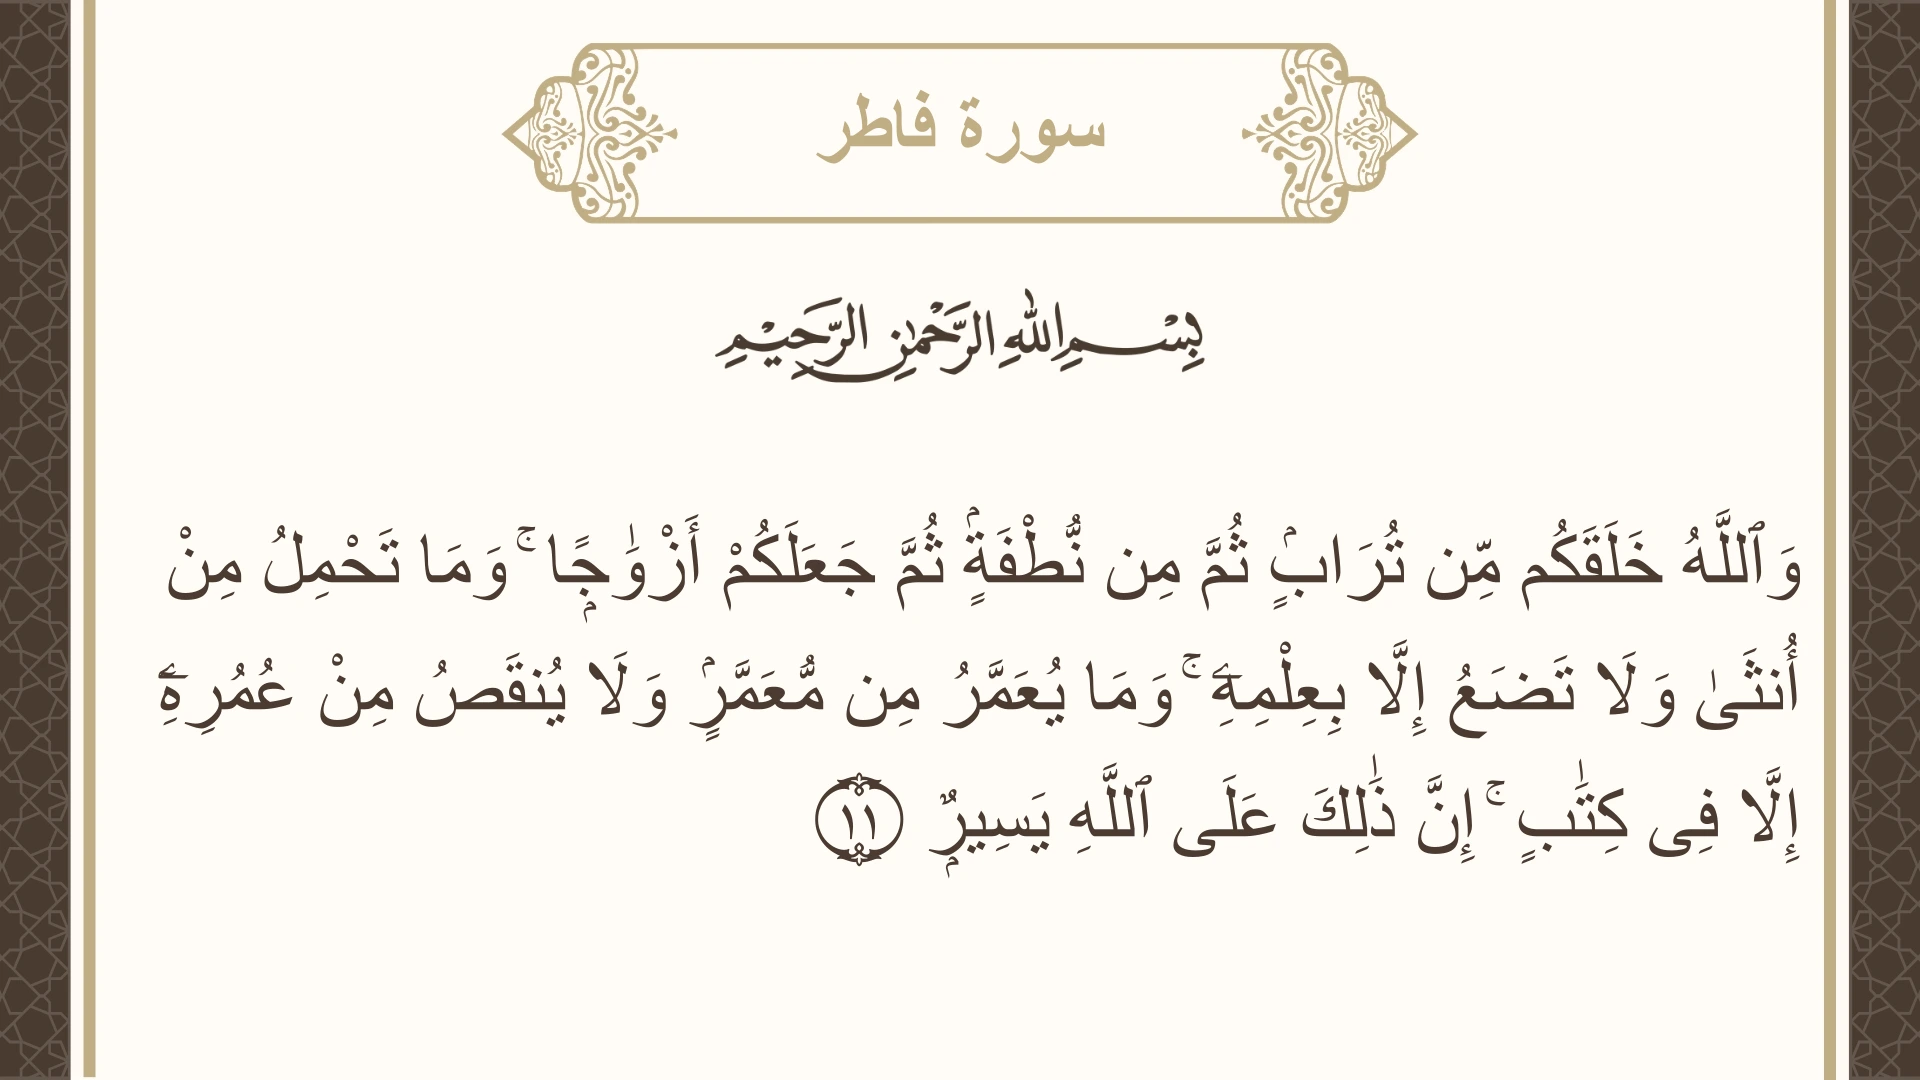 سورة فاطر
بِسْمِ اللهِ الرَّحْمٰنِ الرَّحِيْمِ
وَٱللَّهُ خَلَقَكُم مِّن تُرَابٍۢ ثُمَّ مِن نُّطْفَةٍۢ ثُمَّ جَعَلَكُمْ أَزْوَٰجًۭا ۚ وَمَا تَحْمِلُ مِنْ
أُنثَىٰ وَلَا تَضَعُ إِلَّا بِعِلْمِهِۦ ۚ وَمَا يُعَمَّرُ مِن مُّعَمَّرٍۢ وَلَا يُنقَصُ مِنْ عُمُرِهِۦٓ
إِلَّا فِى كِتَٰبٍ ۚ إِنَّ ذَٰلِكَ عَلَى ٱللَّهِ يَسِيرٌۭ ١١